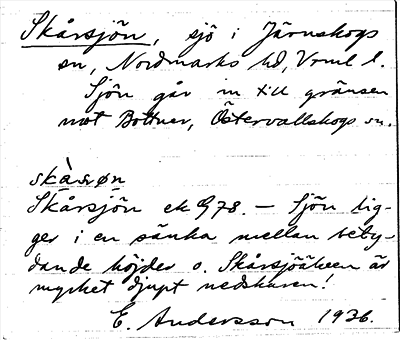 Skårsjön, sjö i Järnskogs
sn, Nordmarks hd, Vrml l.
Sjön går in till gränsen
mot Bottner, Östervallskogs sn.
skàrøn
Skårsjön ek 978. — Sjön lig-
ger i en sänka mellan bety-
dande höjder o. Skårsjöälven är
mycket djupt nedskuren!
E. Andersson 1936.